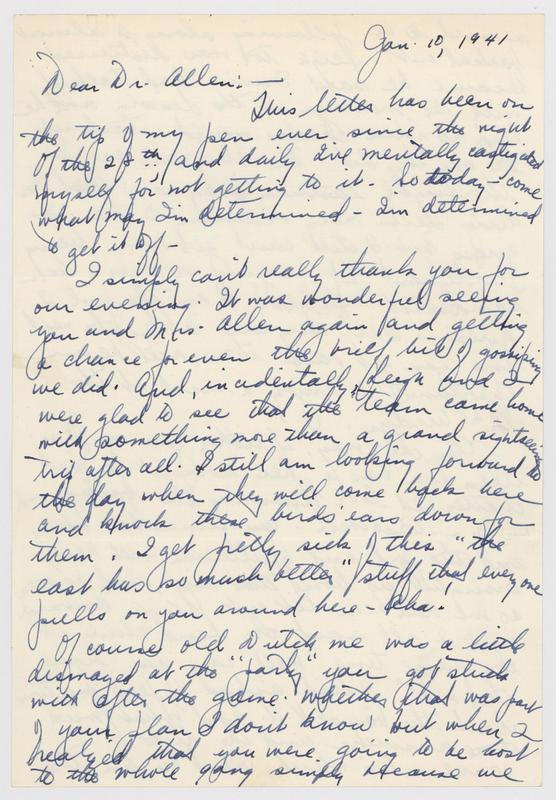 Jan. 10, 1941
Dear Dr. Allen: —
This letter has been on
the tip of my pen ever since the night
of the 28th, and daily I've mentally castigated
myself for not getting to it. So today - come
what may I'm determined - I'm determined
to get it off -
I simply can't really thank you for
our evening. It was wonderful seeing
you and Mrs. Allen again and getting
a chance for even the brief bit of gossiping
we did. And, incidentally, Leigh and I
were glad to see that the team came home
with something more than a grand sightseeing
trip after all. I still am looking forward to
the day when they will come back here
and knock these birds' ears down for
them. I get pretty sick of this "the
east has so much better" stuff that everyone
pulls on you around here -
Of course old Dutch me was a little
dismayed at the "party" you got stuck
with after the game. Whether that was part
of your plan I don't know but when I
realized that you were going to be host
to the whole gang simply because we